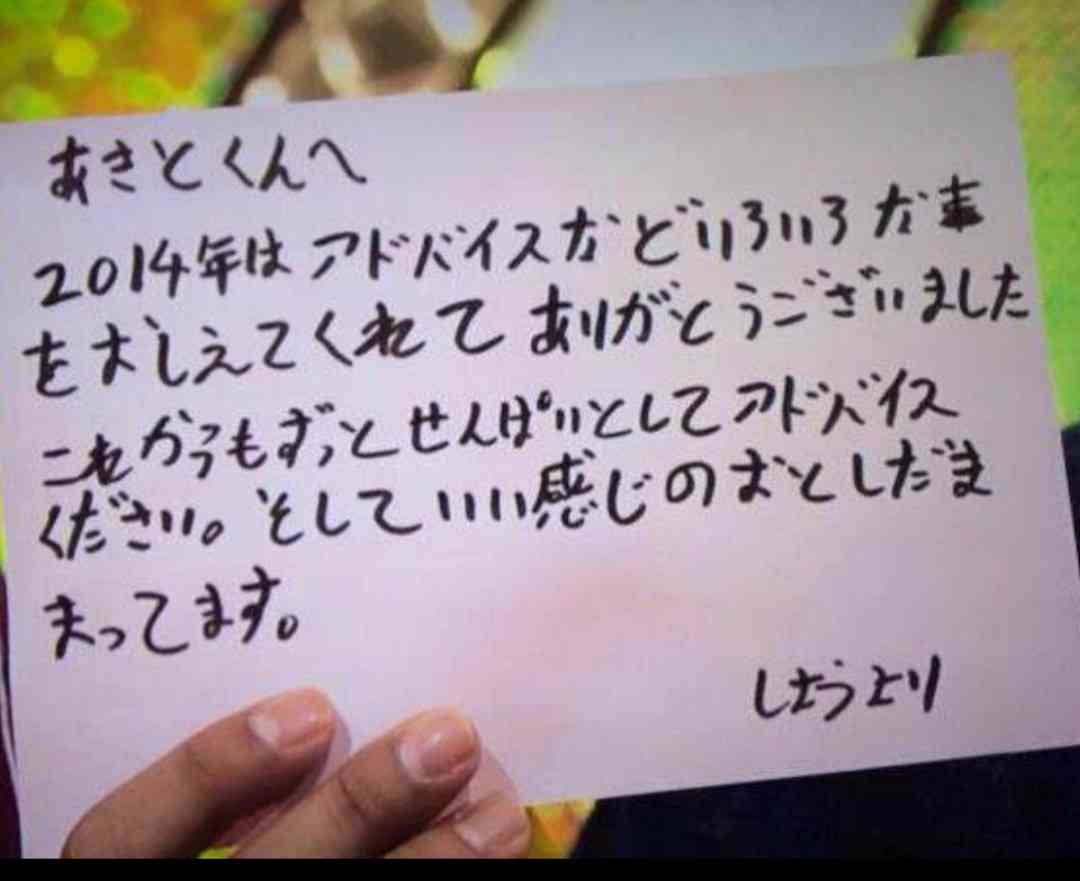 あきとくんへ
2014年はアドバイスなどいろいろな事
をおしえてくれてありがとうございました
これからもずっとせんぱいとしてアドバイス
ください。そしていい感じのおとしだま
まってます。
しょうより